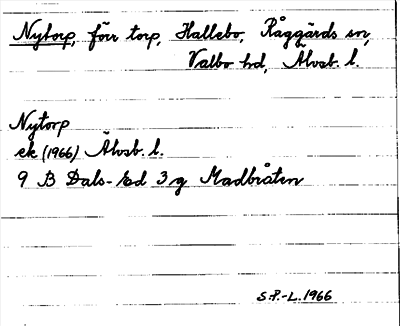 Nytorp, förr torp, Hallebo, Råggärds sn,
Valbo hd, Älvsb. l.
Nytorp
ek (1966) Älvsb. l.
9 B Dals-Ed 3 g Madbråten
S.P.-L. 1966